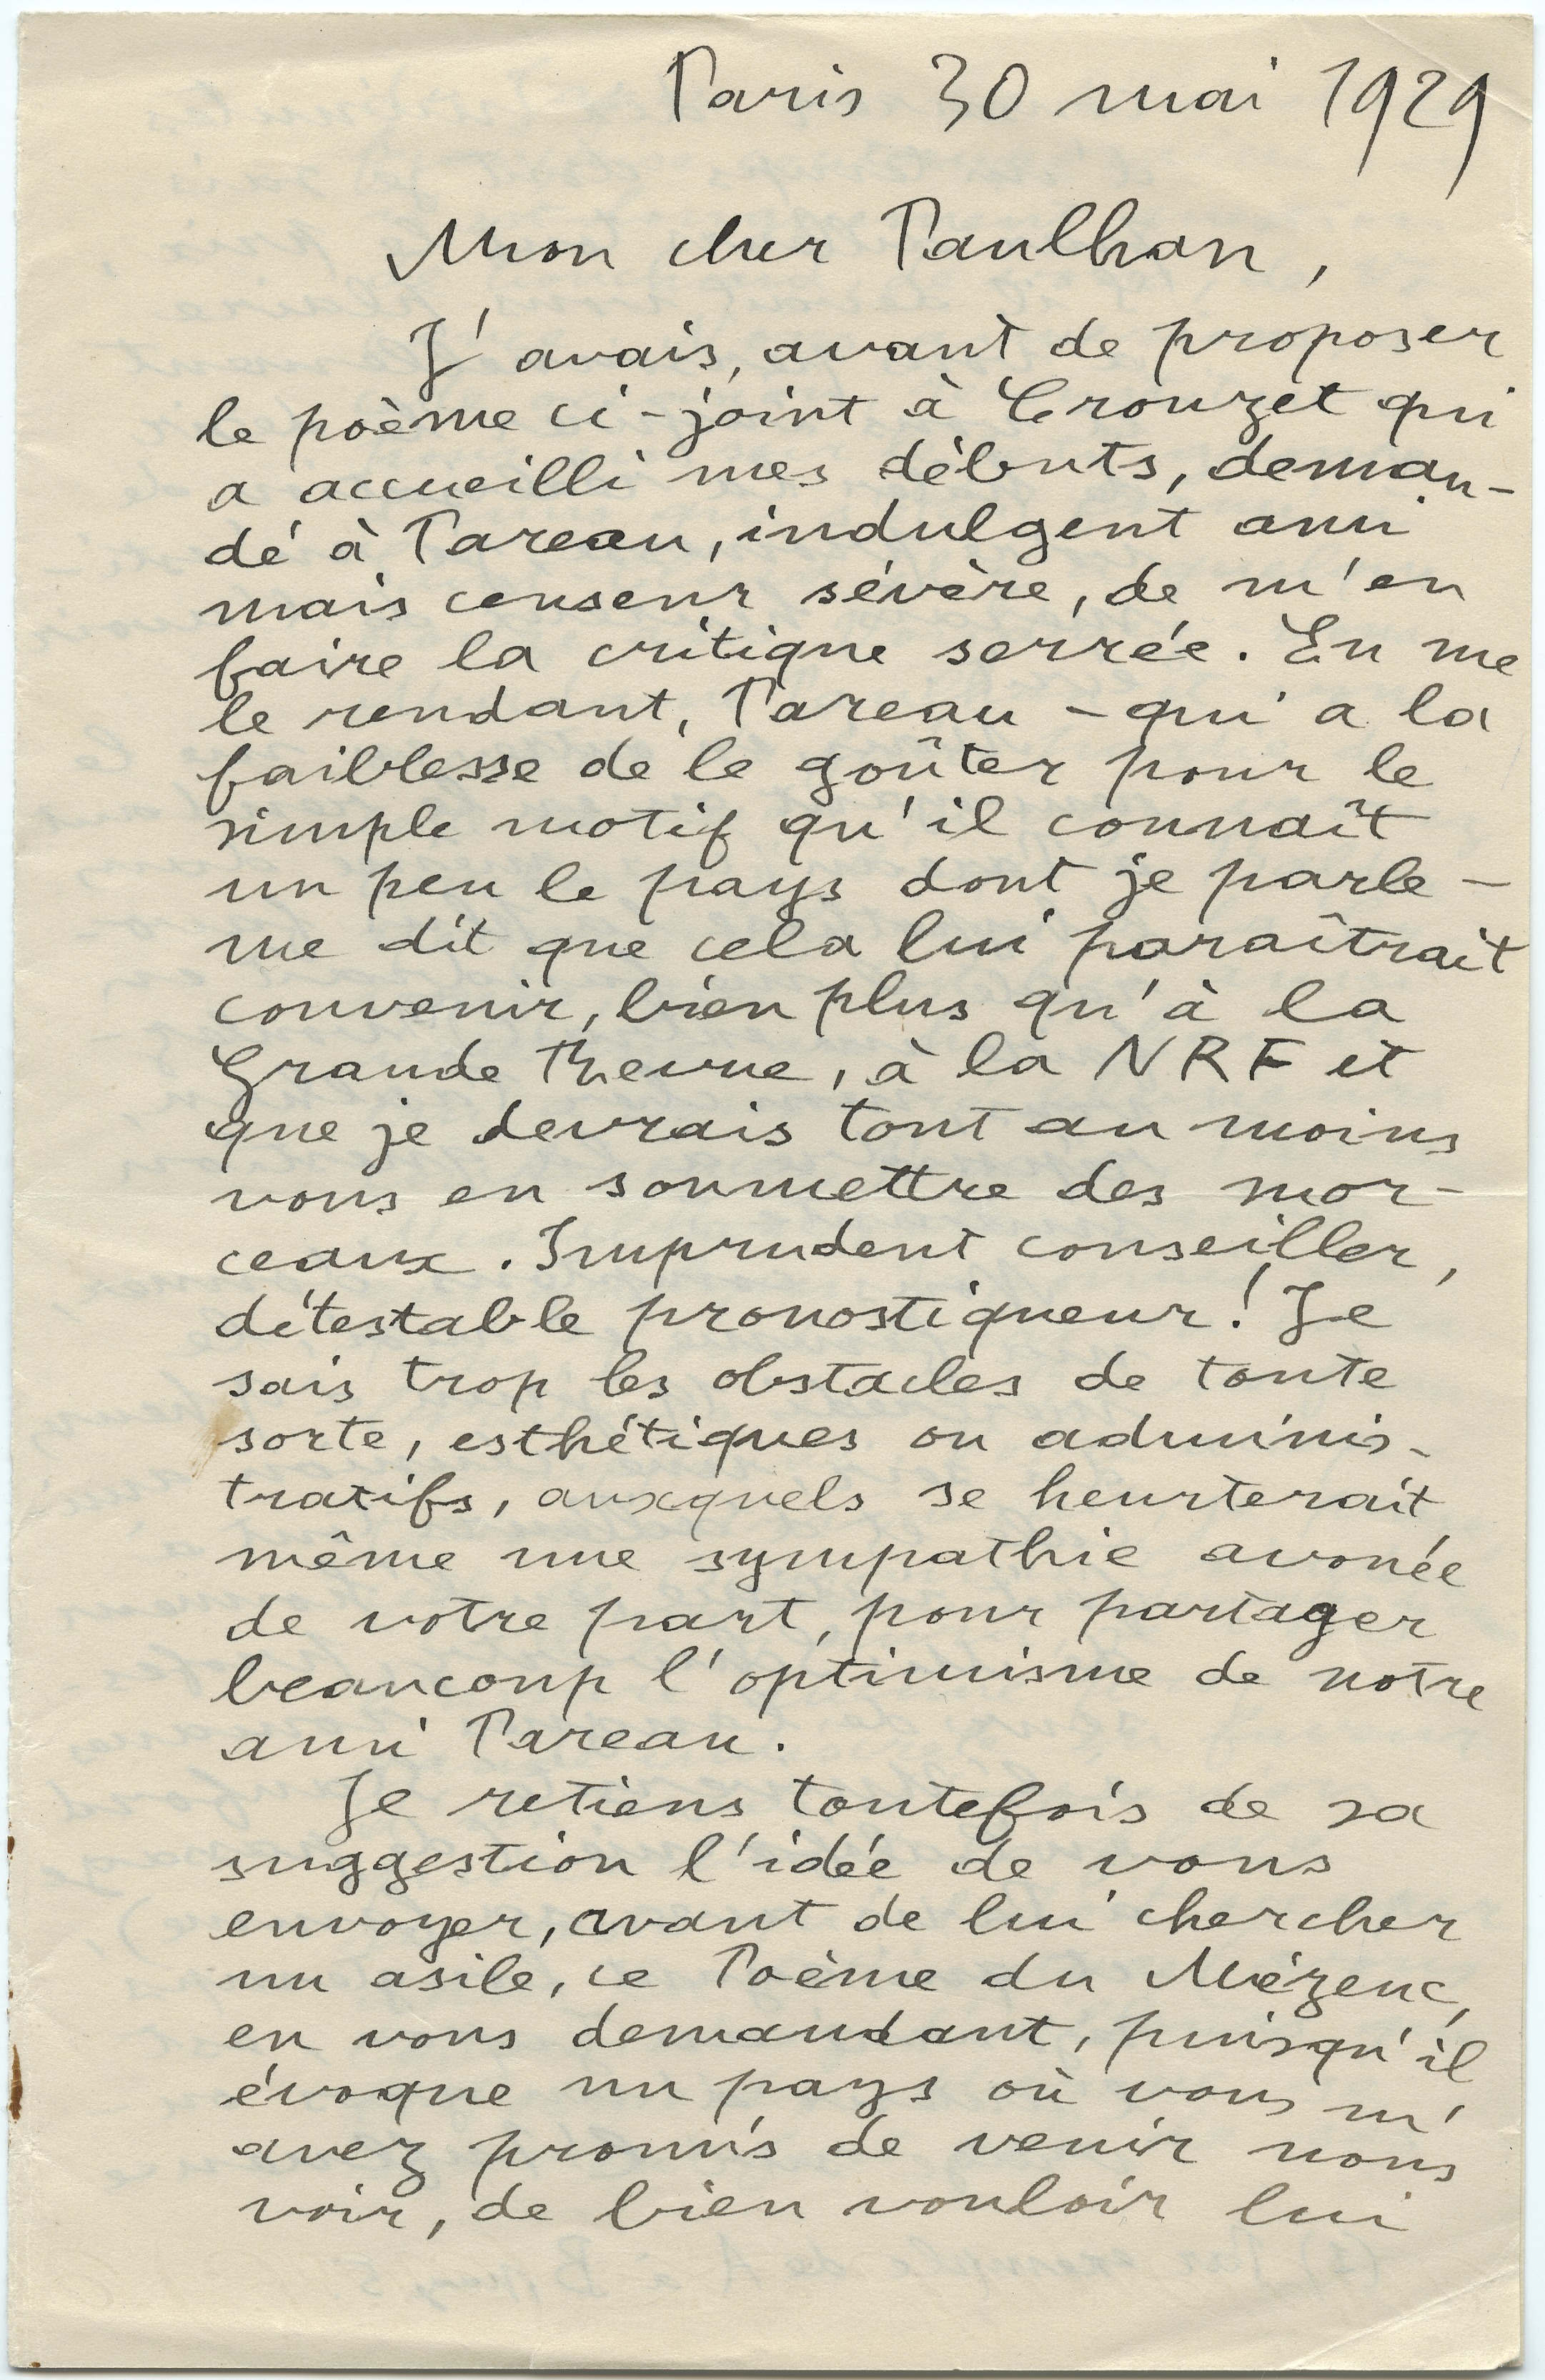 Paris 30 mai 1929
Mon cher Paulhan,
J'avais, avant de proposer
le poème ci-joint à Crouzet qui
a accueilli mes débuts, deman-
dé à Pareau, indulgent ami
mais censeur sévère, de m'en
faire la critique serrée. En me
le rendant, Pareau - qui a la
faiblesse de le goûter pour le
simple motif qu'il connaît
un peu le pays dont je parle -
me dit que cela lui paraîtrait
convenir, bien plus qu'à la
Grande Revue, à la NRF et
que je devrais tout au moins
vous en soumettre des mor-
ceaux. Imprudent conseiller,
détestable pronostiqueur! Je
sais trop les obstacles de toute
sorte, esthétiques ou adminis-
tratifs, auxquels se heurterait
même une sympathie avouée
de votre part, pour partager
beaucoup l'optimisme de notre
ami Pareau.
Je retiens toutefois de sa
suggestion l'idée de vous
envoyer, avant de lui chercher
un asile, ce Poème du Mézenc,
en vous demandant, puisqu'il
évoque un pays où vous m'
avez promis de venir nous
voir, de bien vouloir lui